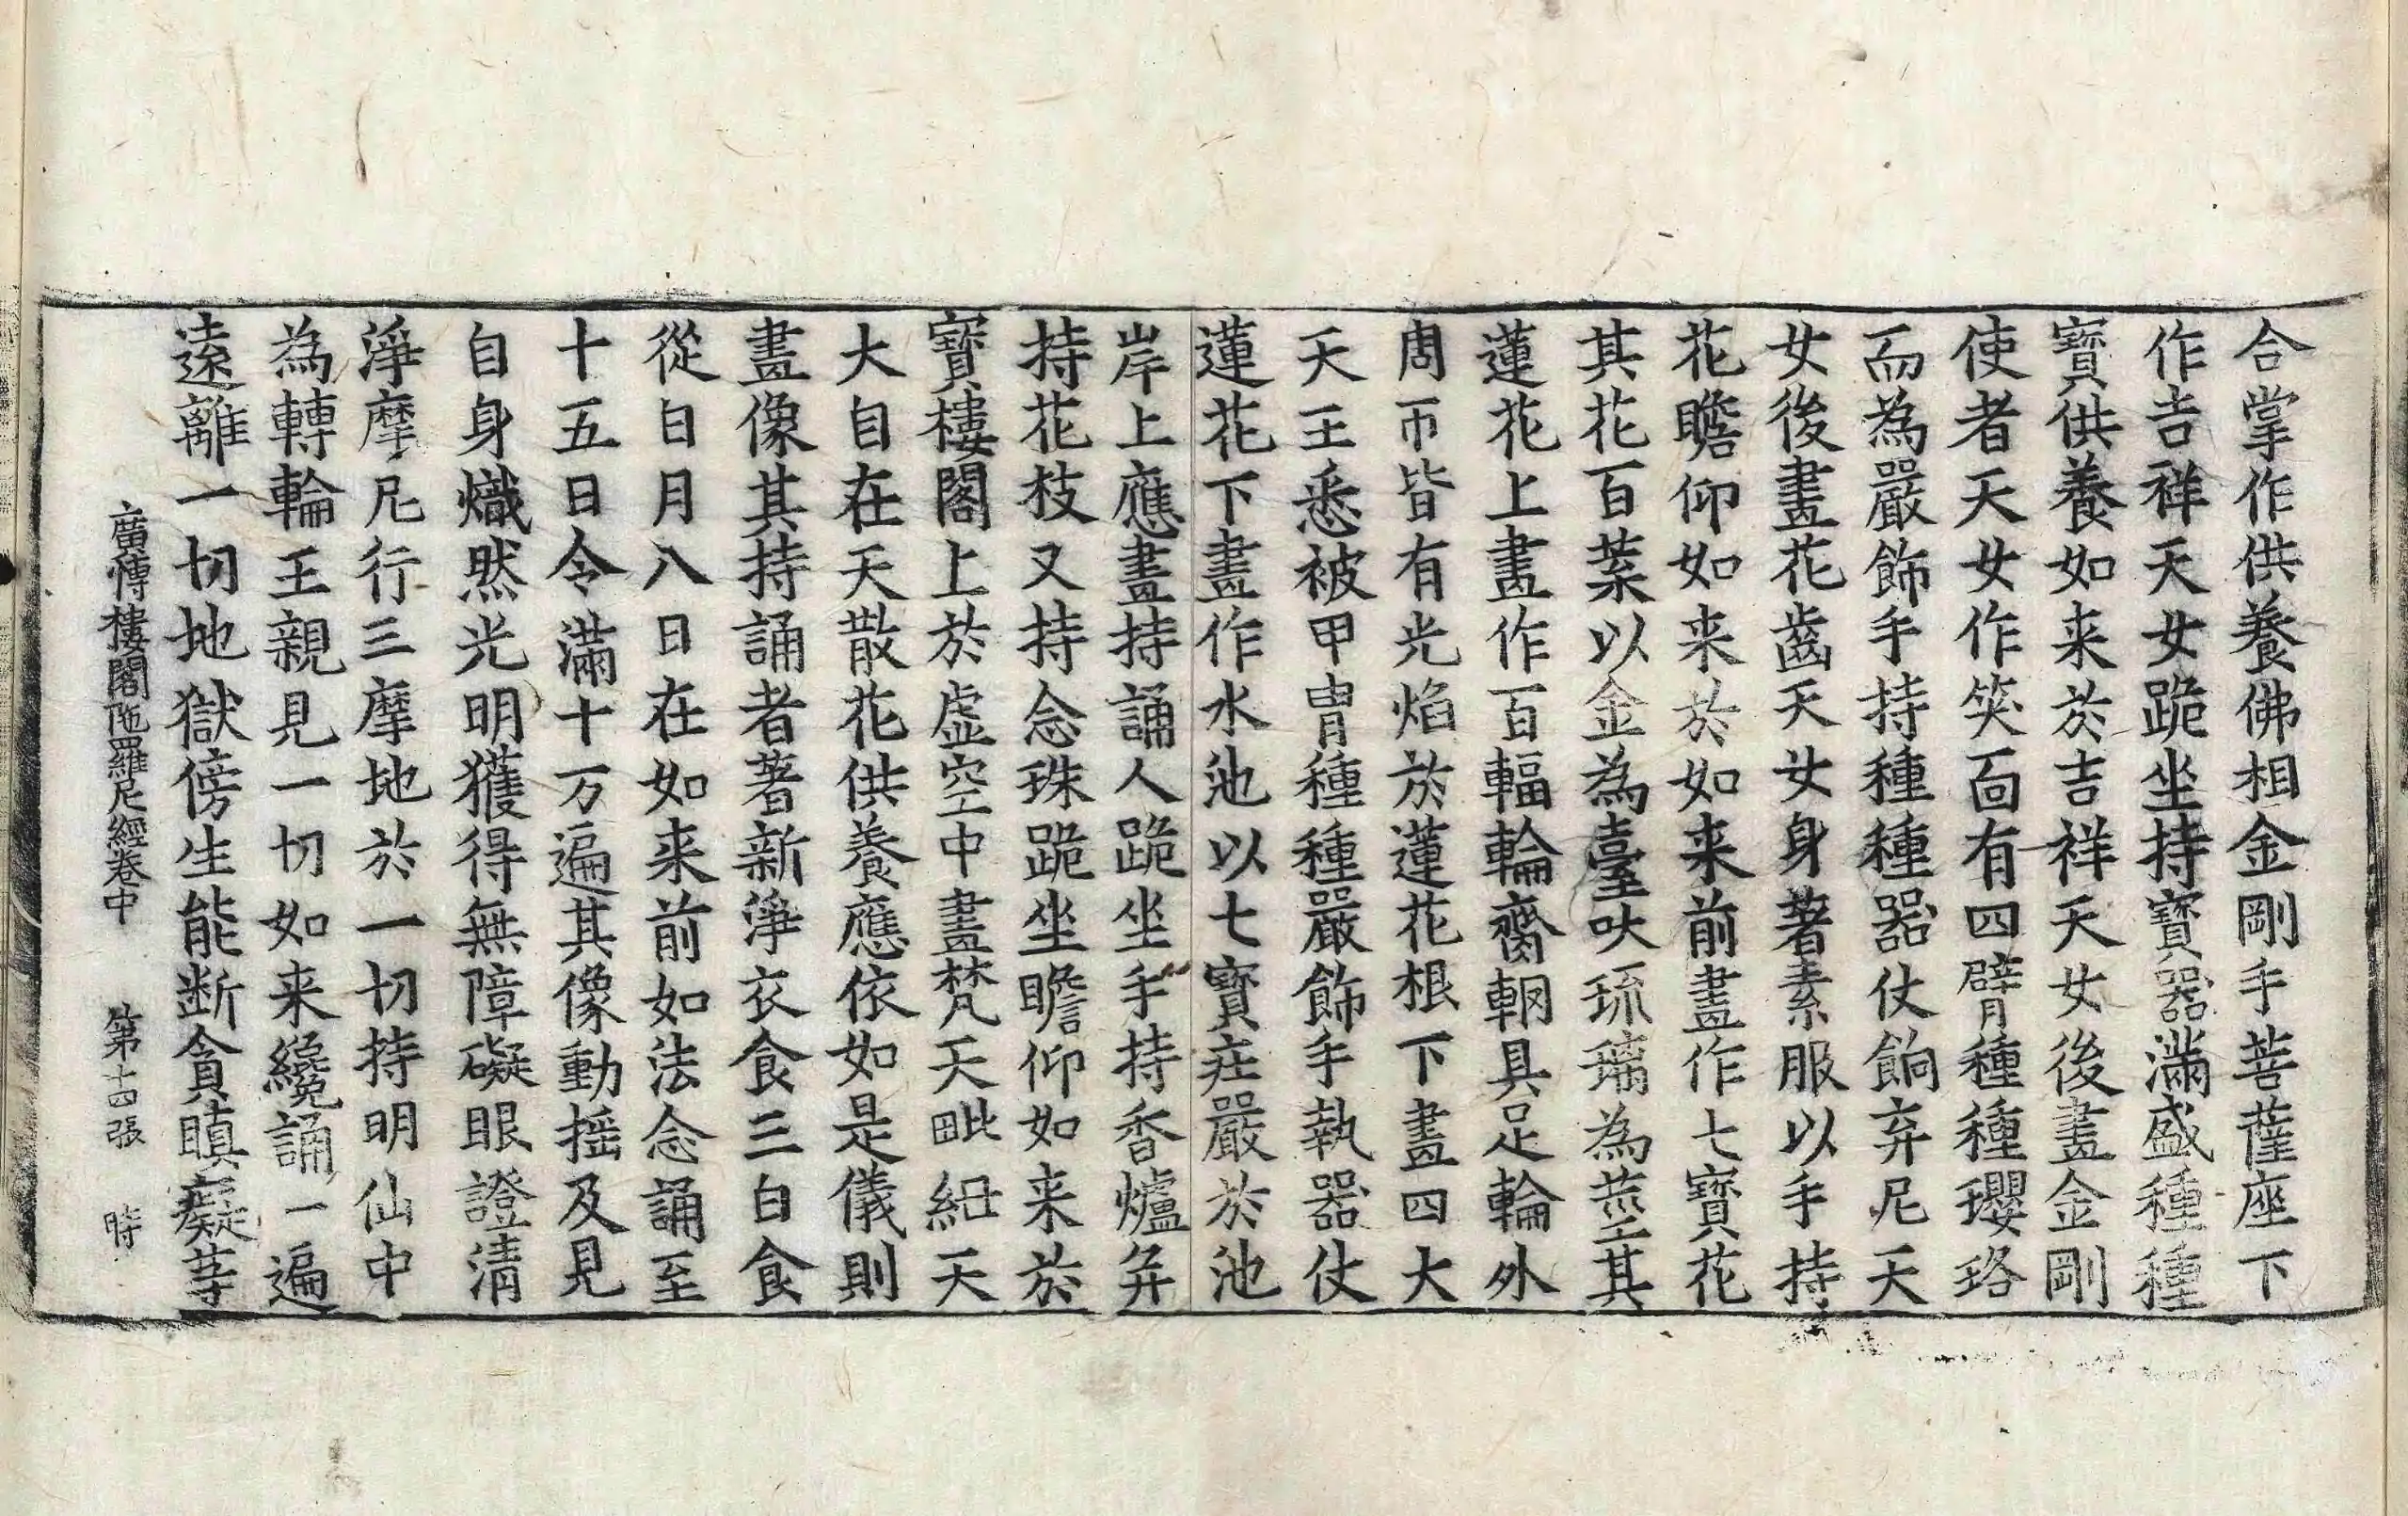 合掌作供養佛相金剛手菩薩座下
作吉祥天女跪坐持寶器滿盛種種
寶供養如来於吉祥天女後畫金剛
使者天女作笑面有四臂種種瓔珞
而為嚴飾手持種種器仗餉弃尼天
女後畫花齒天女身著素服以手持
花瞻仰如来於如来前畫作七寶花
其花百葉以金為臺吠琉璃為莖其
蓮花上畫作百輻輪齊輞具足輪外
周帀皆有光焰於蓮花根下畫四大
天王悉被甲冑種種嚴飾手執器仗
蓮花下畫作水池以七寶莊嚴於池
岸上應畫持誦人跪坐手持香爐弁
持花枝又持念珠跪坐瞻仰如来於
寶樓閣上於虛空中畫梵天毗紐天
大自在天散花供養應依如是儀則
畫像其持誦者著新淨衣食三白食
從白月八日在如来前如法念誦至
十五日令滿十万遍其像動搖及見
自身熾然光明獲得無障礙眼證清
淨摩尼行三摩地於一切持明仙中
為轉輪王親見一切如来纔誦一遍
遠離一切地獄傍生能断貪瞋癡等
廣博樓閣陁羅尼經卷中 第十四張 時